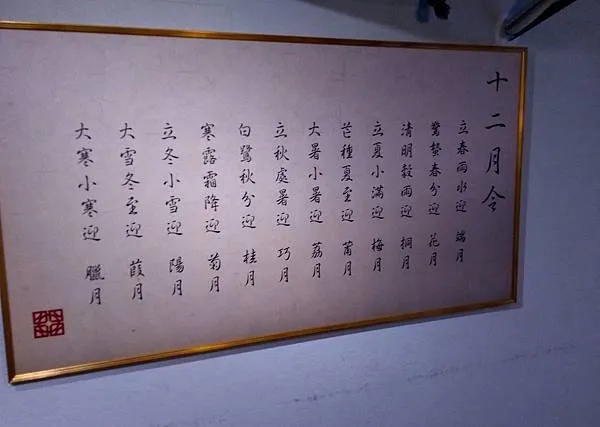 十二月令
立春雨水迎 端月
驚蟄春分迎 花月
清明穀雨迎 桐月
立夏小滿迎 梅月
芒種夏至迎 莆月
大暑小暑迎 荔月
立秋處暑迎 巧月
白鷺秋分迎 桂月
寒露霜降迎 菊月
立冬小雪迎 陽月
大雪冬至迎 葭月
大寒小寒迎 臘月